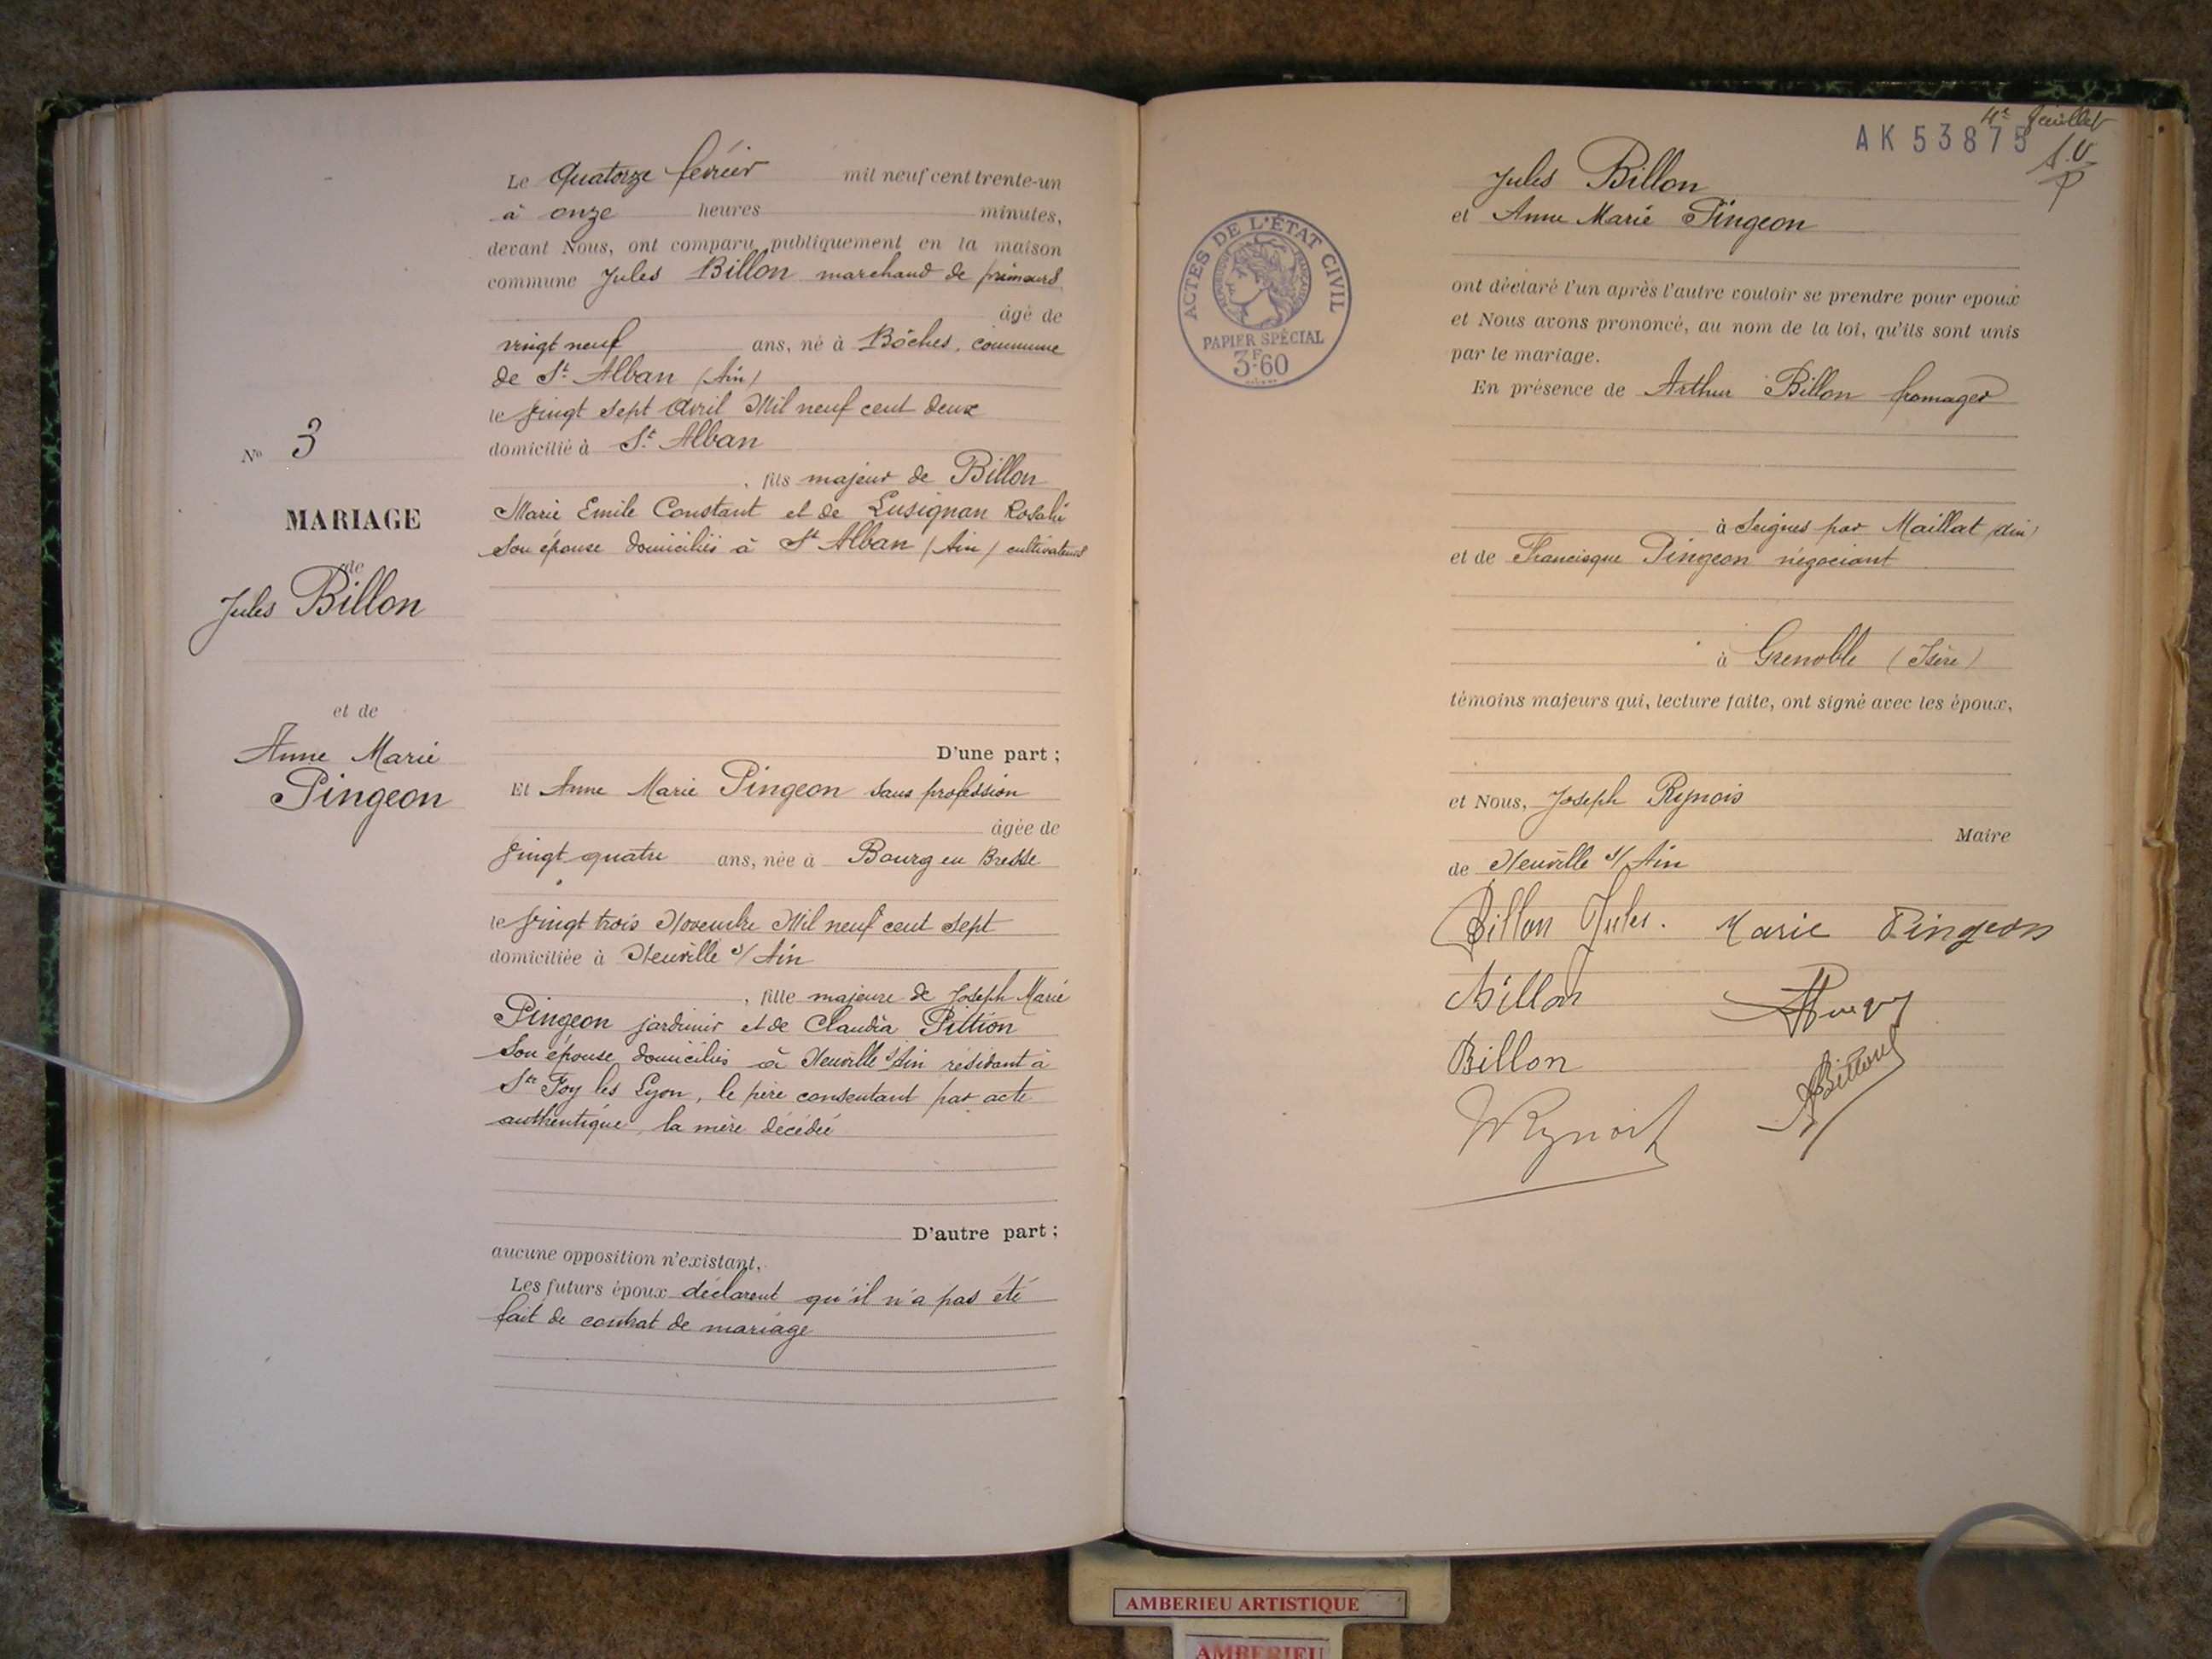 Le Quatorze février mil neuf cent trente-un
à onze heures minutes,
devant Nous, ont comparu publiquement en la maison
commune Jules Billon marchand de primeurs
âgé de
vingt neuf ans, né à Bôches, commune
de St Alban (Ain)
le vingt sept Avril Mil neuf cent deux
domicilié à St Alban
, fils majeur de Billon
Marie Emile Constant et de Lusignan Rosalie
son épouse domiciliés à St Alban (Ain) cultivateurs
D'une part ;
Et Anne Marie Pingeon sans profession
âgée de
vingt quatre ans, née à Bourg en Bresse
le vingt trois Novembre Mil neuf cent sept
domiciliée à Neuville s/ Ain
, fille majeure de Joseph Marie
Pingeon jardinier et de Claudia Pittion
son épouse domiciliés à Neuville s/Ain résidant à
Ste Foy les Lyon, le père consentant par acte
authentique, la mère décédée
D'autre part ;
aucune opposition n'existant,
Les futurs époux déclarent qu'il n'a pas été
fait de contrat de mariage
No 3
MARIAGE
de
Jules Billon
et de
Anne Marie
Pingeon
4e feuillet
AK 53875
ACTES DE L'ÉTAT CIVIL
PAPIER SPÉCIAL
3F60
Jules Billon
et Anne Marie Pingeon
ont déclaré l'un après l'autre vouloir se prendre pour époux
et Nous avons prononcé, au nom de la loi, qu'ils sont unis
par le mariage.
En présence de Arthur Billon fromager
à Seignes par Maillat (Ain)
et de Francisque Pingeon négociant
à Grenoble (Isère)
témoins majeurs qui, lecture faite, ont signé avec les époux,
et Nous, Joseph Reynois
Maire
de Neuville s/ Ain
Billon Jules. Marie Pingeon
Billon
Billon
ABillon
AMBERIEU ARTISTIQUE
AMBERIEU